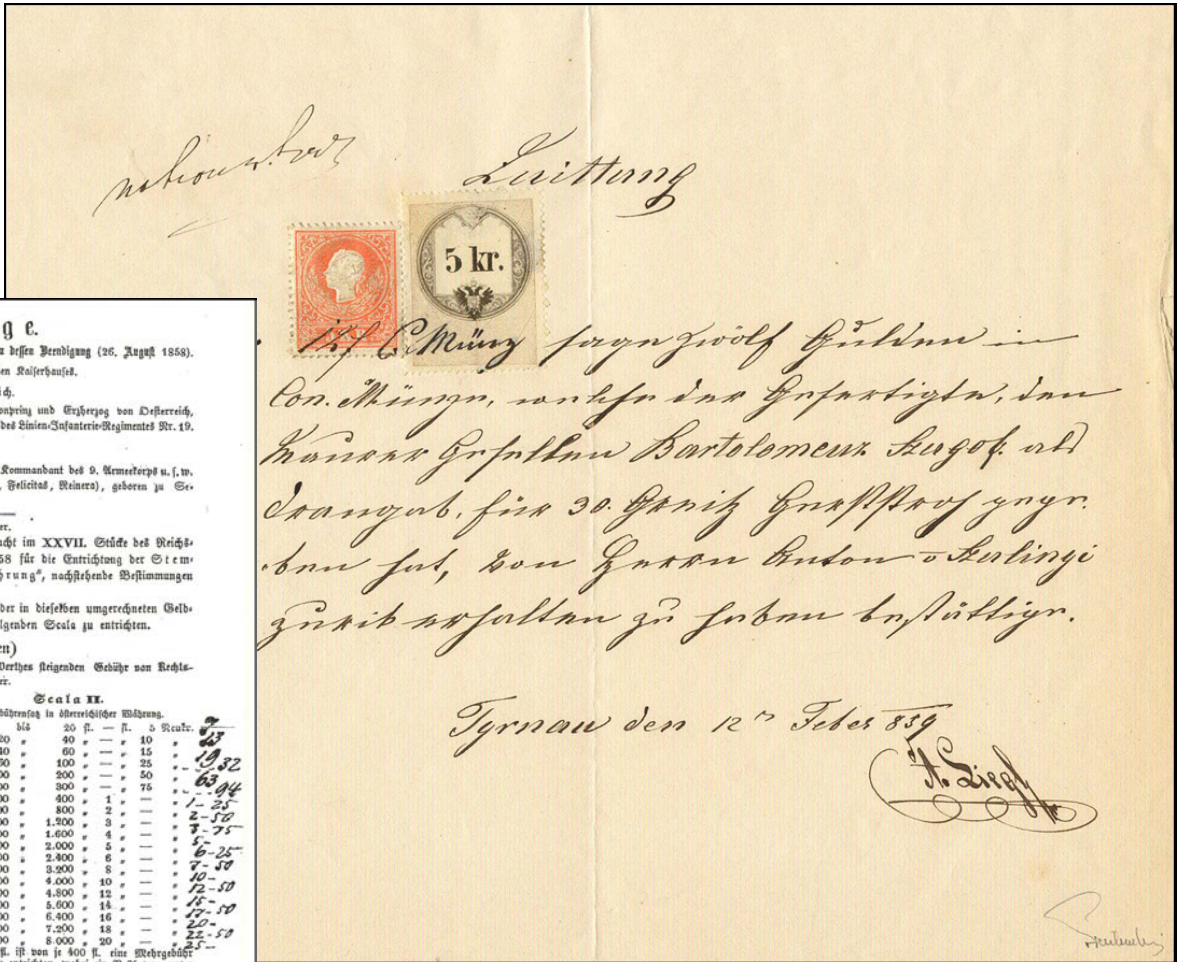 Quittung
5 kr.
12 f C. Münz sage zwölf Gulden in
Con. Münze, welche der Gefertigte, den
Maurer Gesellen Bartolomeus als
für 30. Gerststroh gege-
ben hat, von Herrn Anton v
zurik erhalten zu haben bestättige.
Tyrnau den 12n Feber 859
A. Liegl
g e.
u dessen Beendigung (26. August 1858).
en Kaiserhauses.
ich.
onprinz und Erzherzog von Oesterreich,
des Linien-Infanterie-Regimentes Nr. 19.
Kommandant des 9. Armeekorps u. s. w.
, Felicitas, Reinera), geboren zu Ge-
er.
acht im XXVII. Stücke des Reichs-
58 für die Entrichtung der Stem-
hrung", nachstehende Bestimmungen
der in dieselben umgerechneten Geld-
lgenden Scala zu entrichten.
en)
Werthes steigenden Gebühr von Rechts-
er.
Scala II.
bührensatz in österreichischer Währung.
bis 20 fl. — fl. 5 Neukr. 7
20 " 40 " — " 10 " 13
40 " 60 " — " 15 " 19
60 " 100 " — " 25 " 32
00 " 200 " — " 50 " 63
00 " 300 " — " 75 " 94
00 " 400 " 1 " — " 1-25
00 " 800 " 2 " — " 2-50
00 " 1.200 " 3 " — " 3-75
00 " 1.600 " 4 " — " 5-
00 " 2.000 " 5 " — " 6-25
00 " 2.400 " 6 " — " 7-50
00 " 3.200 " 8 " — " 10-
00 " 4.000 " 10 " — " 12-50
00 " 4.800 " 12 " — " 15-
00 " 5.600 " 14 " — " 17-50
00 " 6.400 " 16 " — " 20-
00 " 7.200 " 18 " — " 22-50
00 " 8.000 " 20 " — " 25-
fl. ist von je 400 fl. eine Mehrgebühr